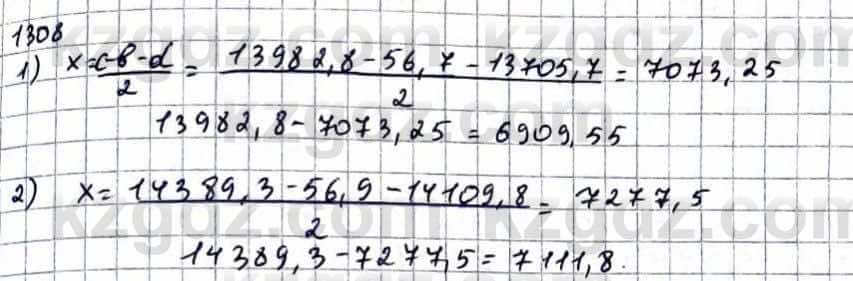 1308
1) x = (c-b-d)/2 = (13982,8 - 56,7 - 13705,7)/2 = 7073,25
13982,8 - 7073,25 = 6909,55
2) x = (14389,3 - 56,9 - 14109,8)/2 = 7277,5
14389,3 - 7277,5 = 7111,8.
kzgdz.com